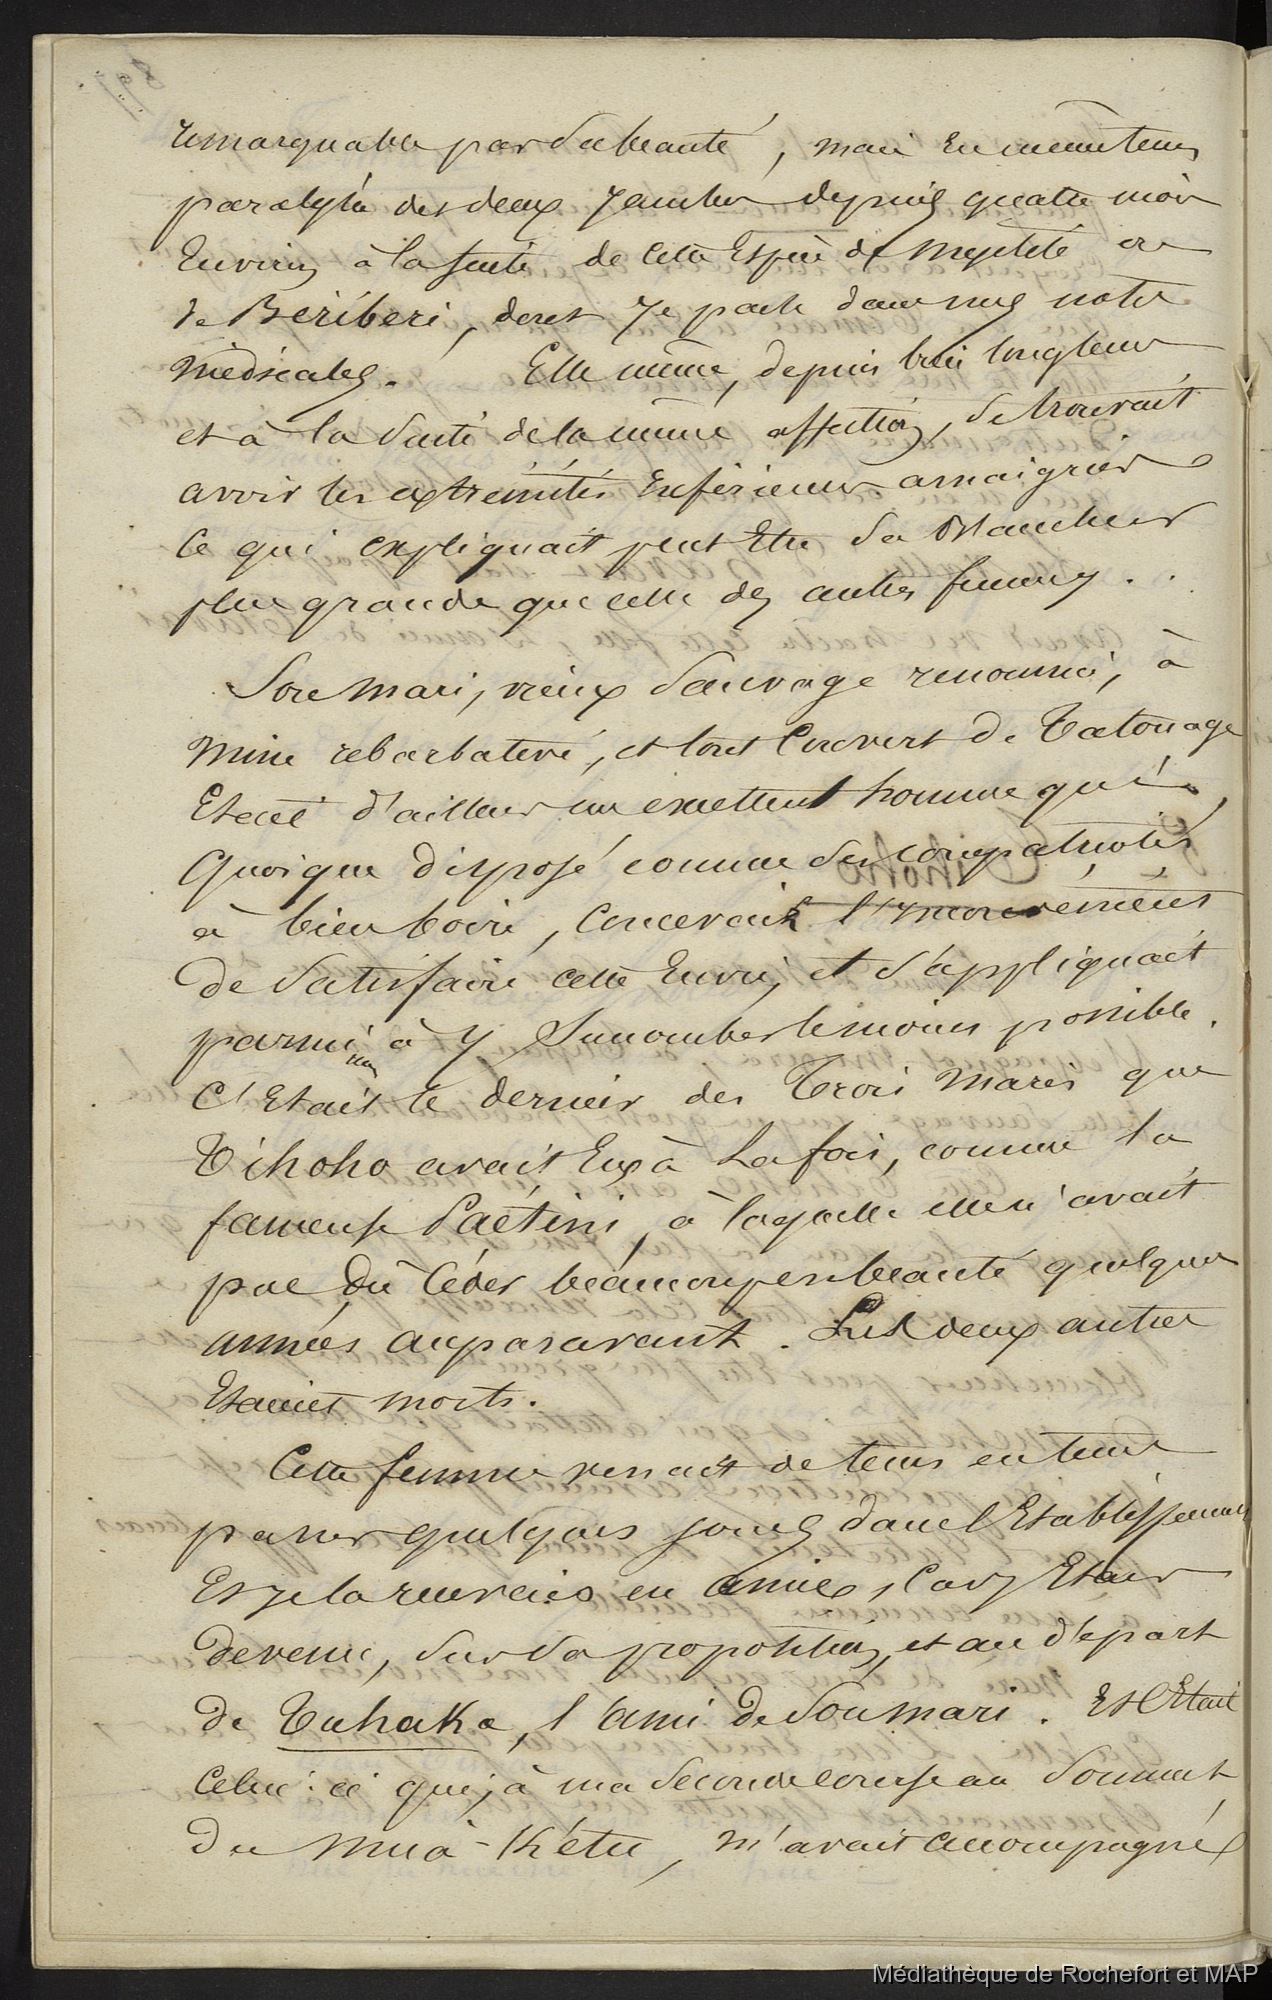 remarquable par sa beauté, mais en même tems
paralysée des deux jambes depuis quatre mois
Environ à la suite de cette Espèce de myélite ou
de Béribéri, dont Je parle dans mes notes
médicales. Elle même, depuis bien longtems
et à la suite de la même affection, se trouvait
avoir les extrémités Inférieures amaigries
ce qui expliquait peut Etre sa blancheur
plus grande que celle des autres femmes.
Son mari, vieux Sauvage renommé, à
mine rébarbative, et tout Couvert de Tatouage
Etait d'ailleurs un excellent homme qui,
Quoique disposé comme ses compatriotes
à bien boire, Concevait l'Inconvénient
de Satisfaire cette Envie, et s'appliquait
parmi nous à y Succomber le moins possible.
C'Etait le dernier des Trois maris que
Tihoho avait Eus à la fois, comme la
fameuse Paétini, à laquelle elle n'avait
pas Dû Céder beaucoup en beauté quelques
années auparavant. Les deux autres
Etaient morts.
Cette femme venait de tems en tems
passer quelques jours dans l'Etablissement
Et je la recevais en amie, Car j'Etais
devenu, sur sa proposition, et au départ
de Tuhaka, l'ami de Son mari. Et C'Etait
Celui-ci qui, à ma Seconde course au Sommet
du Muà-Kétu, m'avait accompagné
Médiathèque de Rochefort et MAP